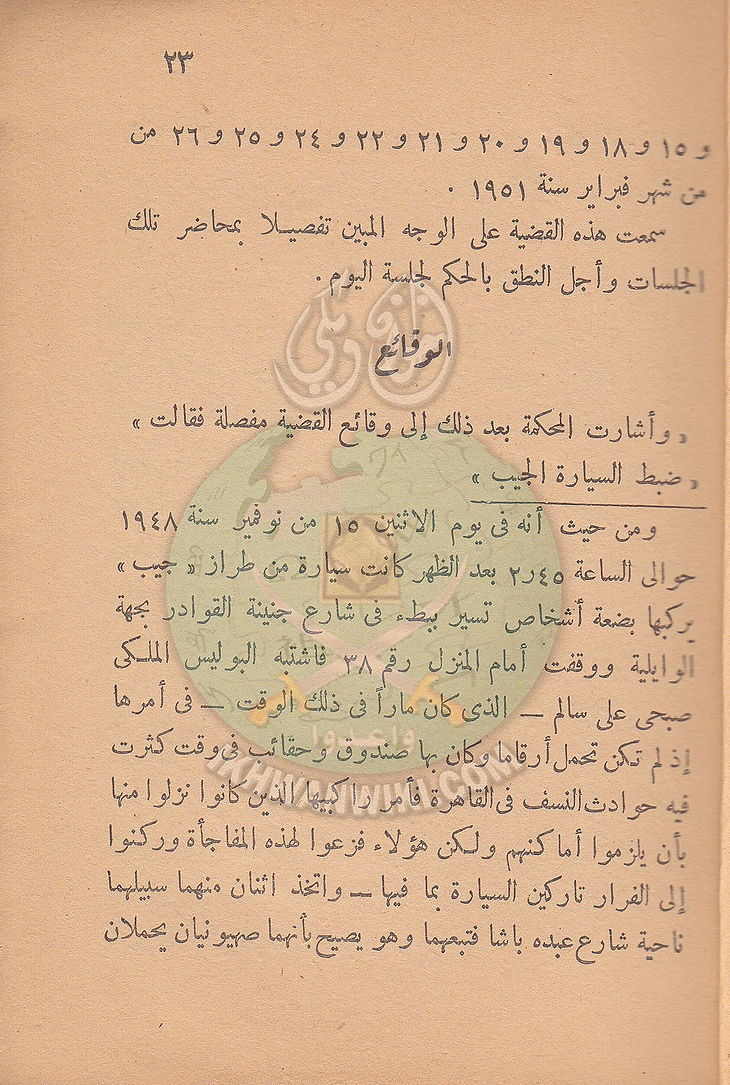 ٢٣
و ١٥ و ١٨ و ١٩ و ٢٠ و ٢١ و ٢٢ و ٢٤ و ٢٥ و ٢٦ من
من شهر فبراير سنة ١٩٥١ .
سمعت هذه القضية على الوجه المبين تفصيلا بمحاضر تلك
الجلسات وأجل النطق بالحكم لجلسة اليوم .
إخوان ويكي
الوقائع
« وأشارت المحكمة بعد ذلك إلى وقائع القضية مفصلة فقالت »
« ضبط السيارة الجيب »
ومن حيث أنه فى يوم الاثنين ١٥ من نوفمبر سنة ١٩٤٨
حوالى الساعة ٤٥ر٢ بعد الظهر كانت سيارة من طراز « جيب »
يركبها بضعة أشخاص تسير ببطء فى شارع جنينة القوادر بجهة
الوايلية ووقفت أمام المنزل رقم ٣٨ فاشتبه البوليس الملكى
صبحى على سالم — الذى كان ماراً فى ذلك الوقت — فى أمرها
إذ لم تكن تحمل أرقاما وكان بها صندوق وحقائب فى وقت كثرت
فيه حوادث النسف فى القاهرة فأمر راكبيها الذين كانوا نزلوا منها
بأن يلزموا أماكنهم ولكن هؤلاء فزعوا لهذه المفاجأة وركنوا
إلى الفرار تاركين السيارة بما فيها — واتخذ اثنان منهما سبيلهما
ناحية شارع عبده باشا فتبعهما وهو يصيح بأنهما صهيونيان يحملان
وأعدوا
IKHWANWIKI.COM